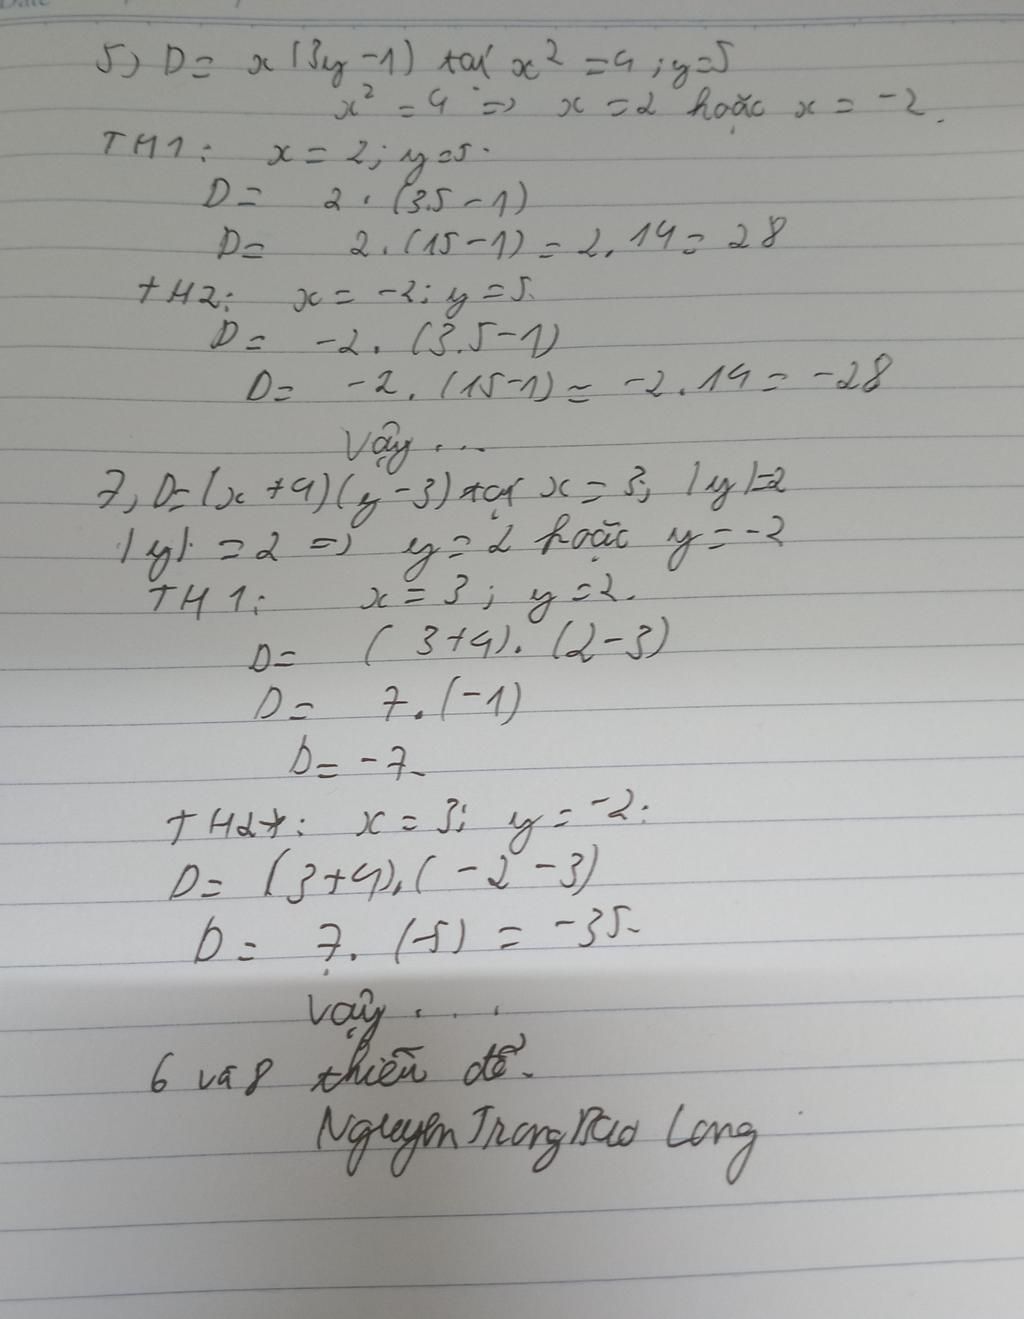 5) D = x(3y-1) tại x² = 4; y=5
x² = 4 => x = 2 hoặc x = -2.
TH1: x = 2; y=5.
D = 2.(3.5-1)
D = 2.(15-1) = 2.14 = 28
TH2: x = -2; y = 5.
D = -2.(3.5-1)
D = -2.(15-1) = -2.14 = -28
Vậy ...
7, D=(x+4)(y-3) tại x = 3; |y|=2
|y| = 2 => y = 2 hoặc y = -2
TH1: x = 3; y = 2.
D = (3+4).(2-3)
D = 7.(-1)
D = -7
TH2: x = 3; y = -2:
D = (3+4).(-2-3)
D = 7.(-5) = -35.
Vậy ...
6 và 8 thiếu đề.
Nguyen Trong Bao Long